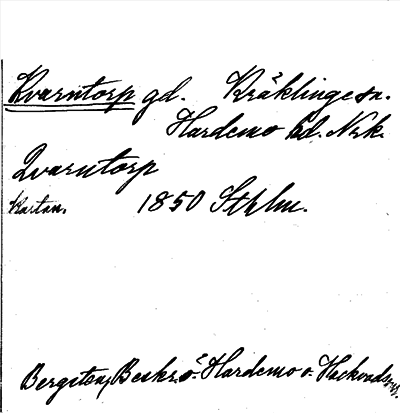 Kvarntorp gd. Kräklinge sn.
Hardemo hd. Nrk.
Qvarntorp
Kartan. 1850 Sthlm.
Bergsten, Beskr. ö. Hardemo o. Hackvads snr.